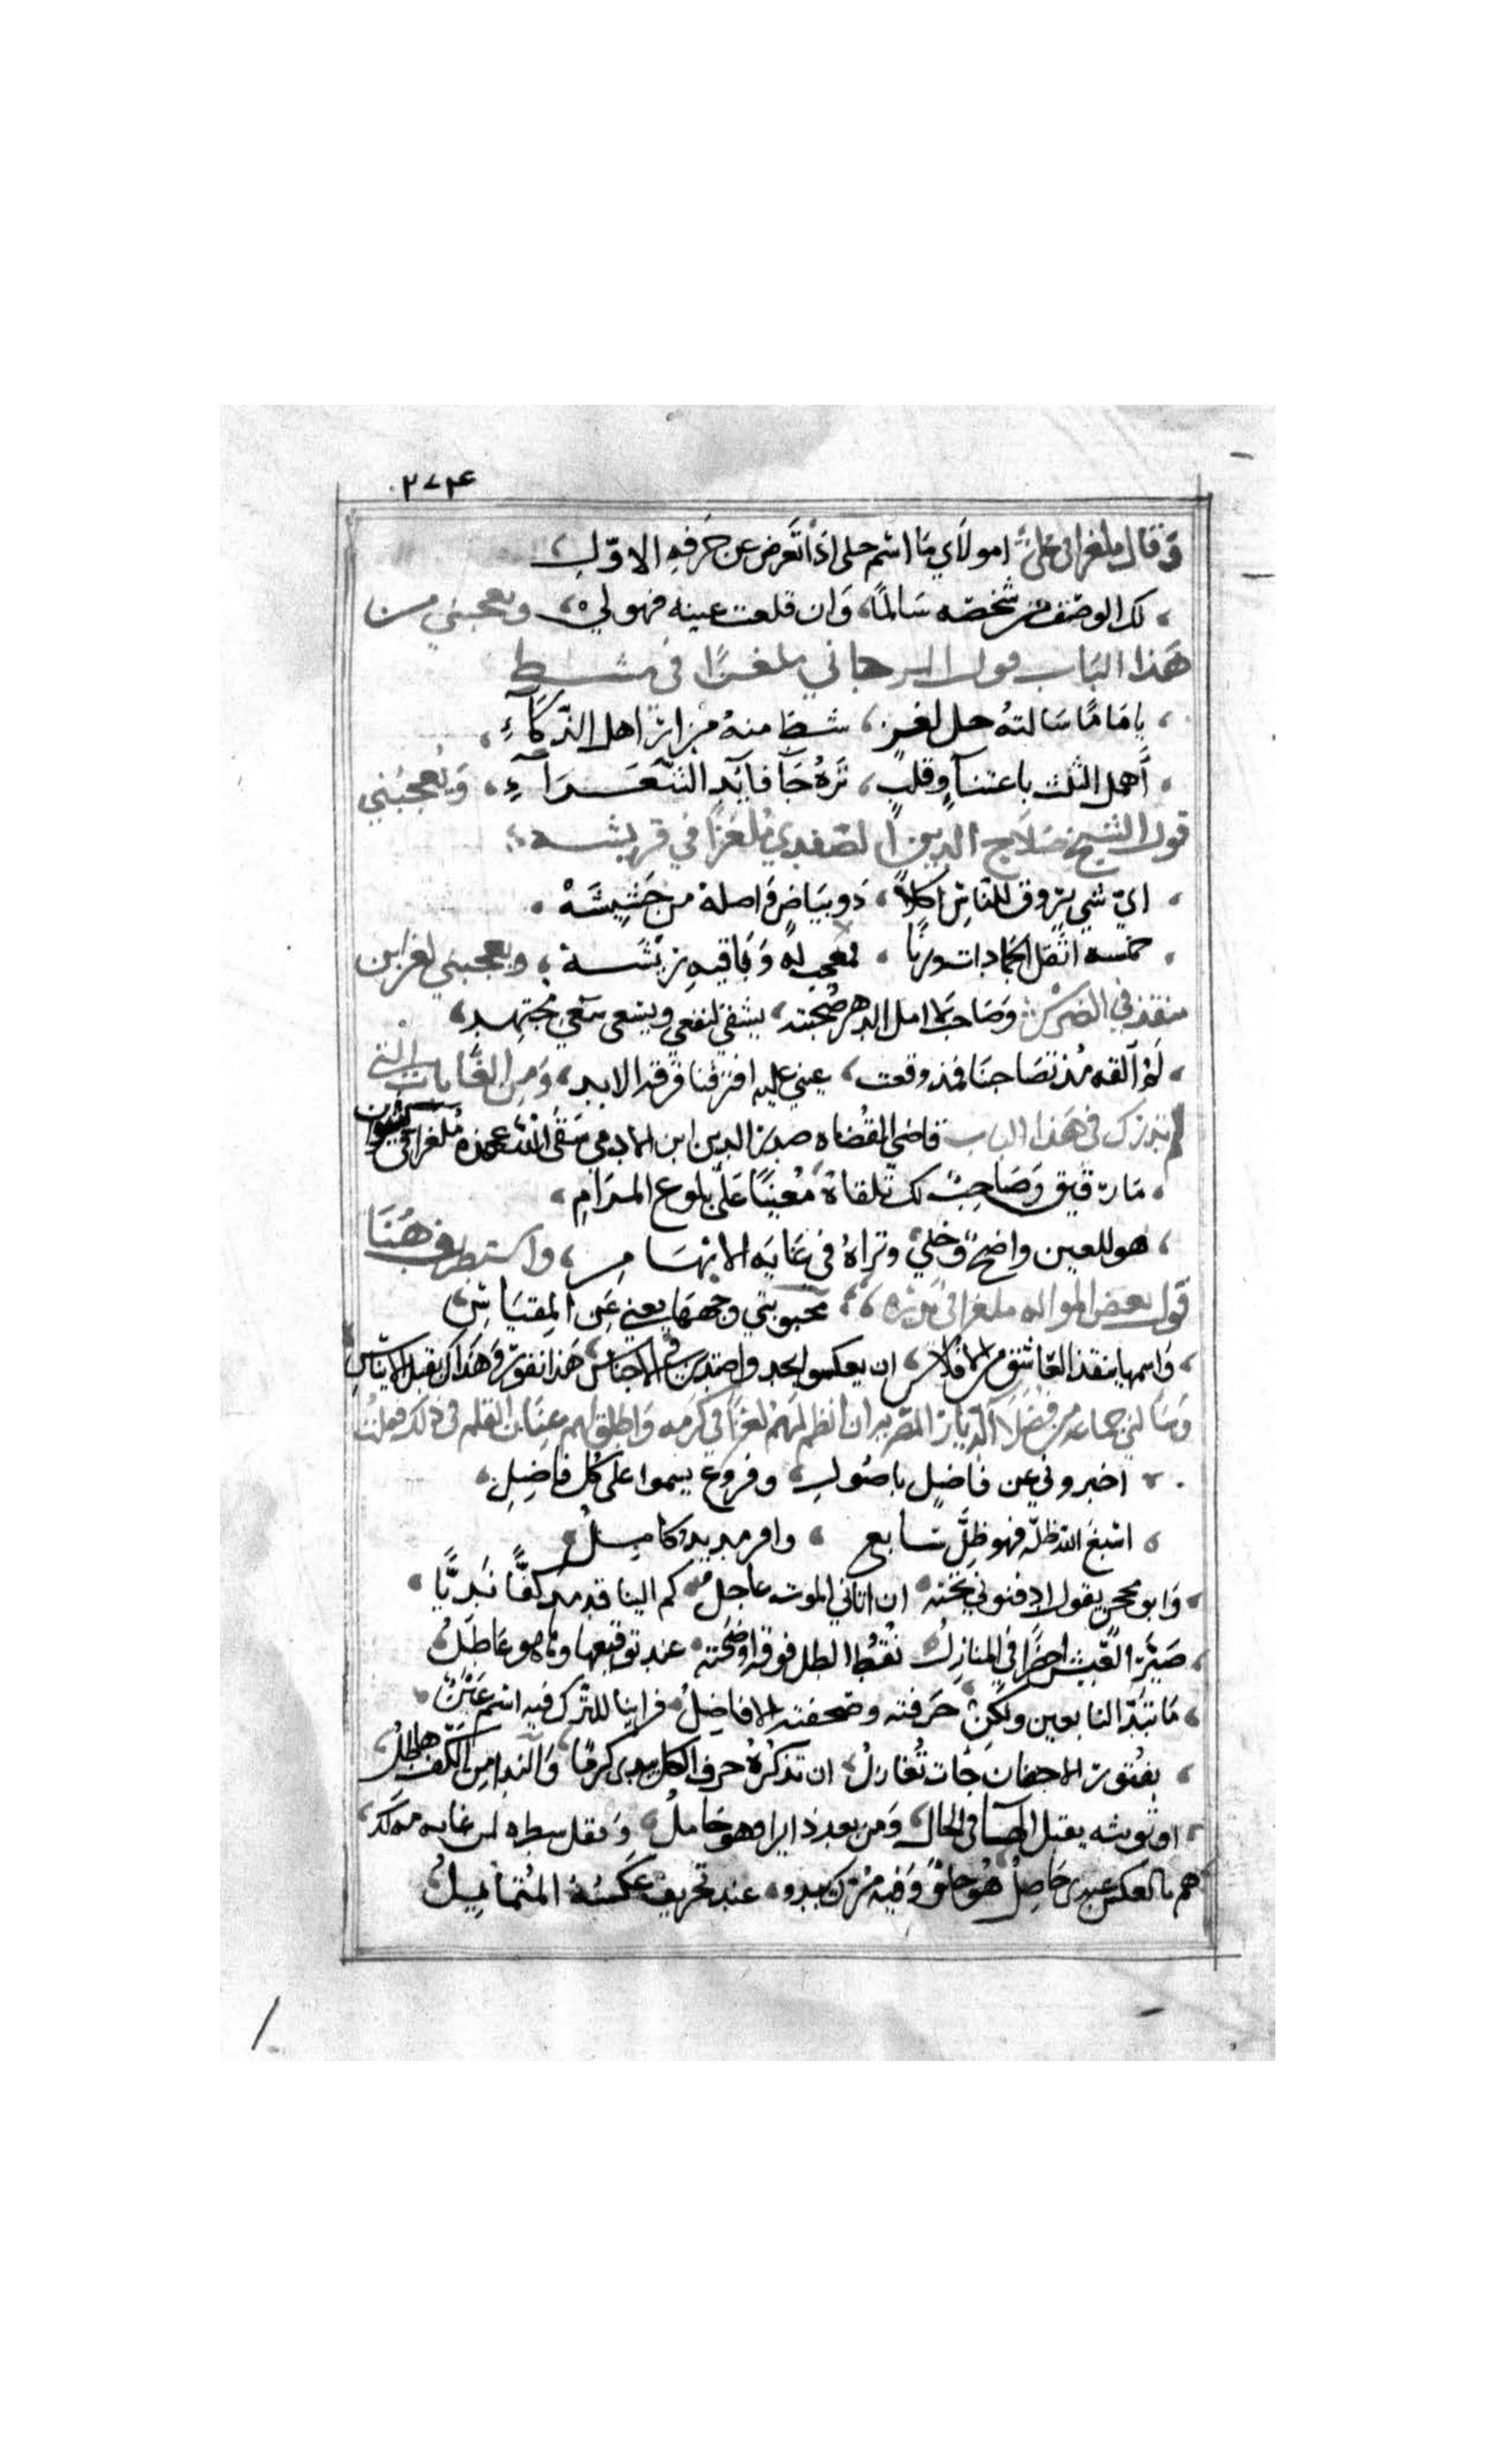 ٢٧٤
وقال ملغزا في علي امولاي ما اسم حلى اذا تعرض عن حرفه الاول
لك الوصف من شخصه سالما، وان قلعت عينه فهو لي، ويعجبني من
هذا الباب قول الارجاني ملغزا في مشط
يا اماما سالته حل لغز، شط منه مزار اهل الذكاء،
أهمل الثلث باعتناء وقلب، تره جآ فايد الشعراء، ويعجبني
قول الشيخ صلاح الدين الصفدي ملغزا في قريشه
اي شي يروق للناس اكلا، ذو بياض واصله من حشيشة
خمسه اثقل الجمادات وزنا، فعجب له وباقيه ريشة، ويعجبني لغز ابن
منقذ في الضرس وصاحب لا امل الدهر صحبته، يشقى لنفعي ويسعى سعي مجتهد،
لم القه مذ تصاحبنا فمذ وقعت، عيني عليه افترقنا فرقة الابد، ومن الغايات التي
لم تدرك في هذا الباب قاضي القضاه صدر الدين ابن الادمي سقى الله عهده ملغزا في
ما رفيق وصاحب لك تلقاه معينا على بلوع المرام
هو للعين واضح وجلي وتراه في غاية الابهام، واستطرف هنا
قول بعض المواله ملغزا في محبوبتي وجهها يغني عن المقباس
واسمها ينقذ العاشق من الافلاس ان يعكسو لجد واصتدرش في الاجناس هذا نفور وهذاك يقبل الايناس
وسالني جماعه من فضلاء الديار المصريه ان انظم لهم لغزا في كرمه واطلق لهم عنان القلم في ذلك فقلت
اخبروني عن فاضل باصول، وفروع يسموا على كل فاضل
اسبغ الله ظله فهو ظل سابع، وافر مديد كامل
وابو محجن يقول ادفنوني تحته ان اتاني الموت عاجل كم الينا قد مد كفا نديا
صير العيش اخضرا في المنازل نقط الطل فوقه اوضحته عند توقيعها وما هو عاطل
ما تبدا لنا بعين ولكن حرفته وصحفته الافاضل فراينا للترك فيه اسم عين
بفتور الاجفان جات تغازل ان تذكره حرف الكل يبدى كرما والندا من الكف هاطل
او تونثه يقبل الها في الحال ومن بعد ذا يرا وهو حامل
هم بالعكس عندى حاصل هو حلو وفيه مر يبدو عند تحريف عكسه المتماثل